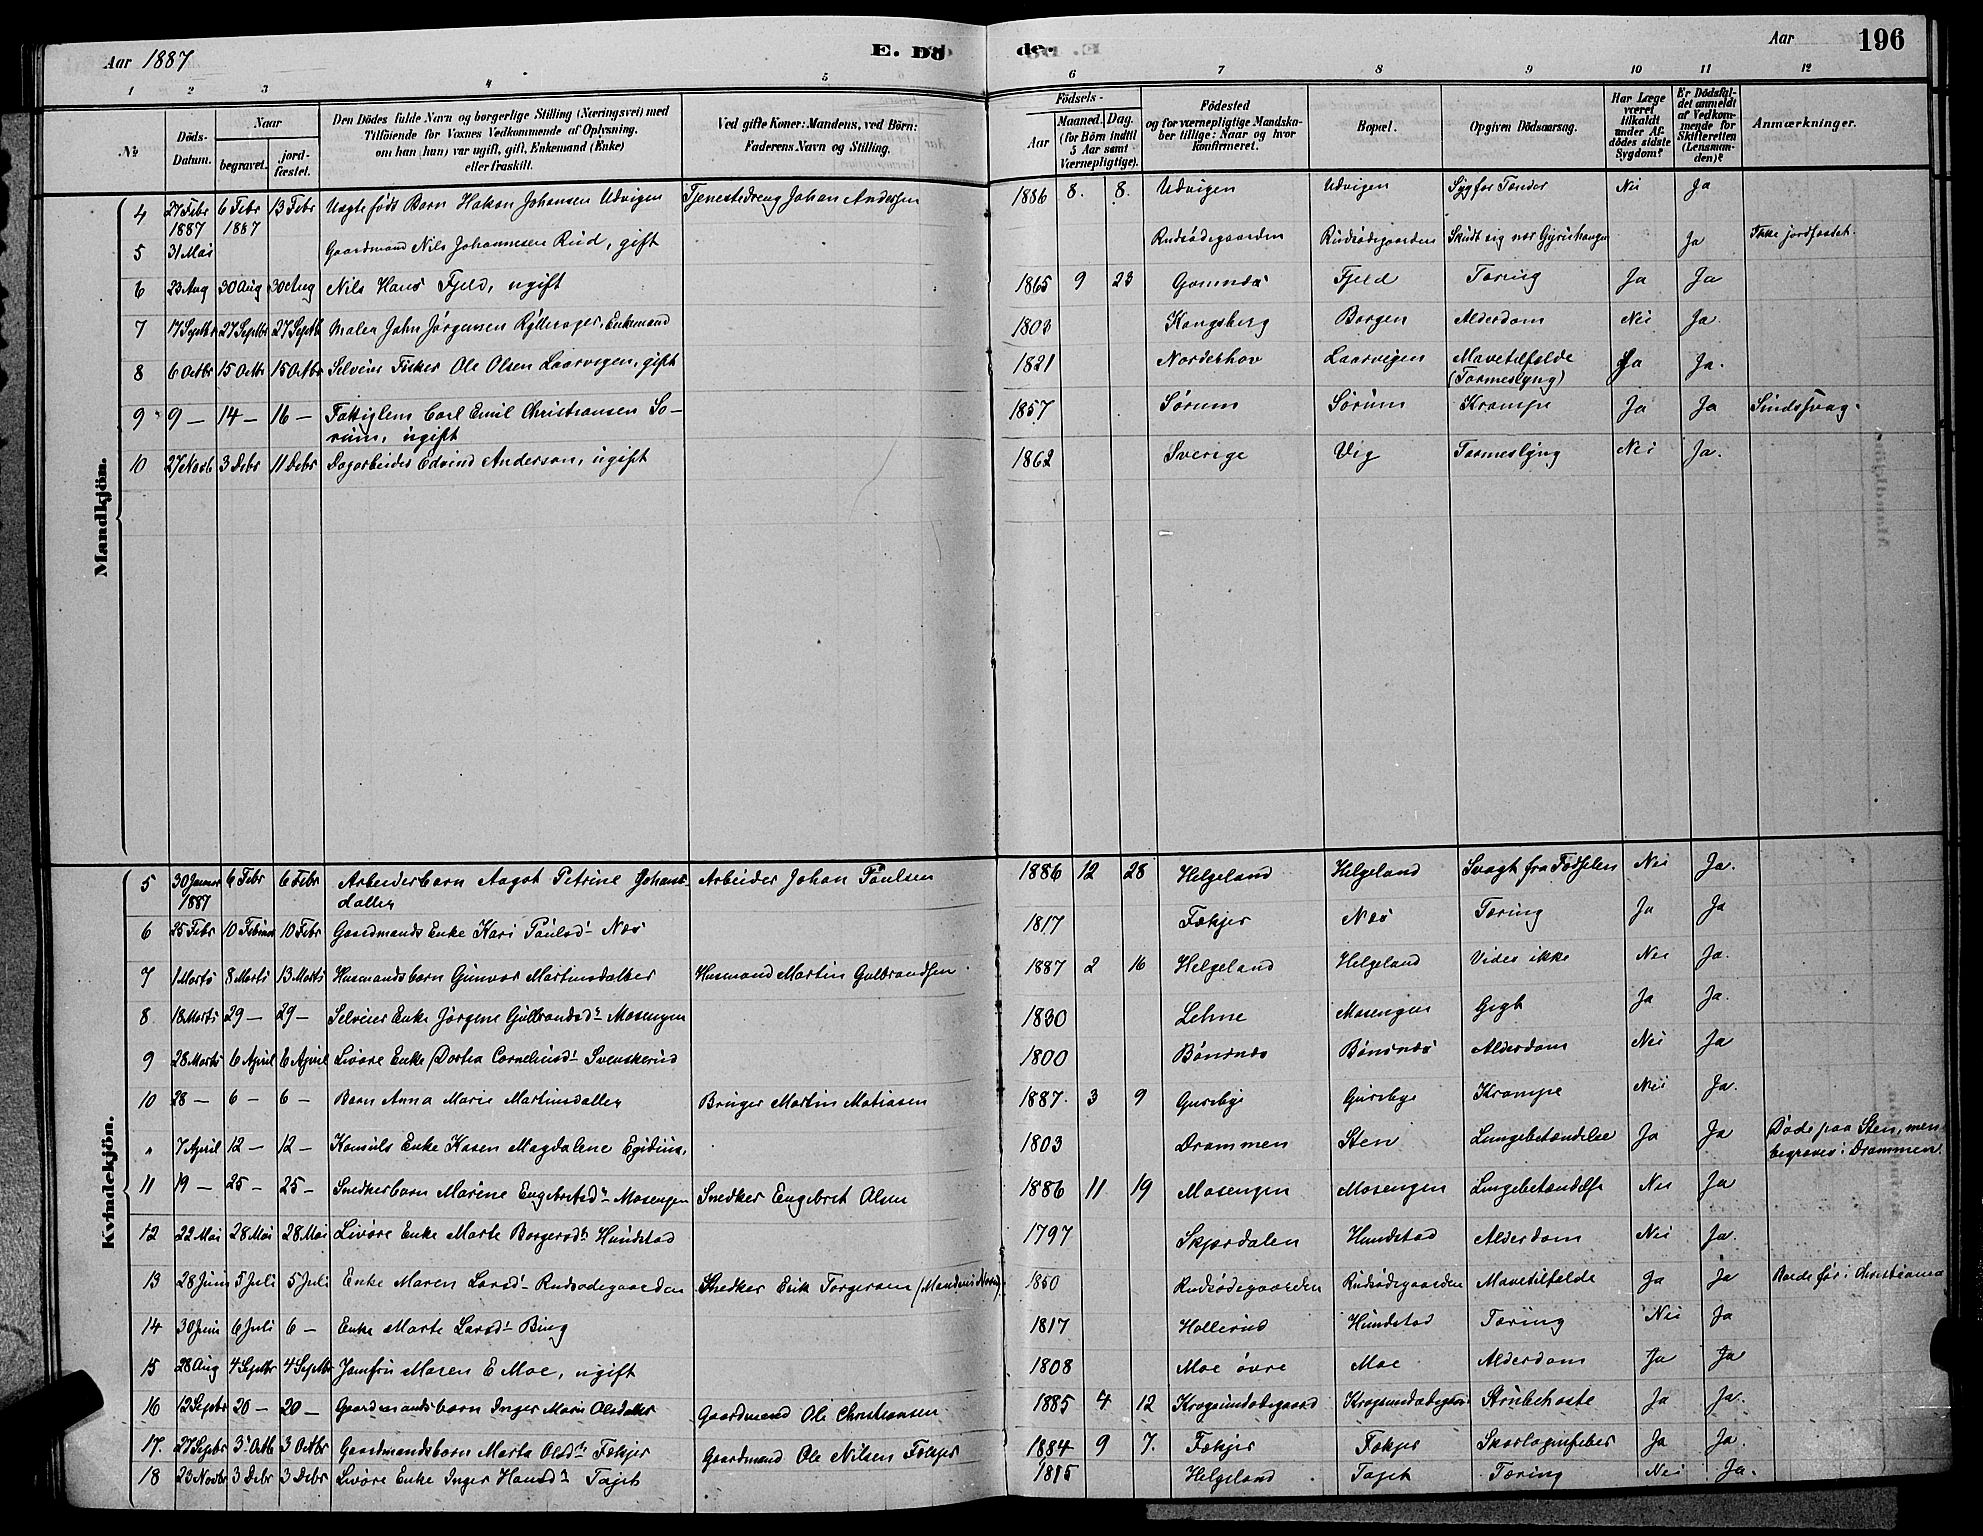 Aar 1887
E. Dö
de.
Aar
196
1 2 3 4 5 6 7 8 9 10 11 12
No
Döds-Datum.
Naar
begravet.
jord-fæstet.
Den Dödes fulde Navn og borgerlige Stilling (Næringsvei) med
Tilföiende for Voxnes Vedkommende af Oplysning,
om han (hun) var ugift, gift, Enkemand (Enke)
eller fraskilt.
Ved gifte Koner: Mandens, ved Börn:
Faderens Navn og Stilling.
Födsels-
Aar
Maaned. Dag.
(for Börn indtil
5 Aar samt
Værnepligtige).
Födested
og for værnepligtige Mandska-
ber tillige: Naar og hvor
Konfirmeret.
Bopæl.
Opgiven Dödsaarsag.
Har Læge
været
tilkaldt
under Af-
dödes sidste
Sygdom?
Er Dödsfal-
det anmeldt
af Vedkom-
mende for
Skifteretten
(Lensman-
den)?
Anmærkninger.
Mandkjön.
4 27 Febr 1887 6 Febr 1887 13 Febr Uægte født Barn Hakon Johansen Udvigen Tjenestedreng Johan Andersen 1886 8. 8. Udvigen Udvigen Syg for Tænder Nei Ja
5 31 Mai Gaardmand Nils Johannesen Rud, gift Rudsødegaarden Rudsødegaarden Skudt sig nær Gyrihaugen Ja Ikke jordfæstet
6 23 Aug 30 Aug 30 Aug Nils Hans Fjeld, ugift 1865 9 23 Gomnæs Fjeld Tæring Ja Ja
7 17 Septbr 27 Septbr 27 Septb Maler John Jørgensen Rytterager, Enkemand 1803 Kongsberg Borgen Alderdom Nei Ja
8 6 Octbr 15 Octbr 15 Octbr Selveier Fisker Ole Olsen Laarvigen, gift 1821 Norderhov Laarvigen Mavetilfælde (Tarmeslyng) Ja Ja.
9 9 — 14 — 16 — Fattiglem Carl Emil Christiansen Sø-
rum, ugift 1857 Sørum Sørum Krampe Ja Ja Sindssvag.
10 27 Novb 3 Debr 11 Debr Dagarbeider Edvind Anderson, ugift 1862 Sverige Vig Tarmeslyng Nei Ja.
Kvindekjön.
5 30 Januar 1887 6 Febr 6 Febr Arbeiderbarn Aagot Petrine Johans-
datter Arbeider Johan Paulsen 1886 12 28 Helgeland Helgeland Svagt fra Fødselen Nei Ja.
6 25 Febr 10 Februar 10 Febr Gaardmands Enke Kari Paulsd: Næs 1817 Fækjer Næs Tæring Ja Ja
7 1 Marts 8 Marts 13 Marts Husmandsbarn Gunvor Martinsdatter Husmand Martin Gulbrandsen 1887 2 16 Helgeland Helgeland Vides ikke Nei Ja.
8 18 Marts 29 — 29 — Selveier Enke Jørgene Gulbrandsd: Mosengen 1830 Lehne Mosengen Gigt Ja Ja.
9 28 Marts 6 April 6 April Livøre Enke Dortea Corneliusd: Svenskerud 1800 Bønsnæs Bønsnæs Alderdom Nei Ja
10 28 — 6 — 6 — Barn Anna Marie Martinsdatter Bruger Martin Matiasen 1887. 3 9 Gursbye Gursbye Krampe Nei Ja.
" 7 April 12 — 12 — Konsuls Enke Karen Magdalene Egidius, 1803 Drammen Sten Lungebetændelse Ja Ja Døde paa Sten, men
begraves i Drammen
11 19 — 25 — 25 — Snedkerbarn Marine Engebretsd: Mosengen Snedker Engebret Olsen 1886 11 19 Mosengen Mosengen Lungebetændelse Nei Ja
12 22 Mai 28 Mai 28 Mai Livøre Enke Marte Borgersd: Hundstad 1797 Skjærdalen Hundstad Alderdom Nei Ja.
13 28 Juni 5 Juli 5 Juli Enke Maren Larsd: Rudsødegaarden Snedker Erik Torgersen (Mandens Navn) 1850 Rudsødegaarden Rudsødegaarden Mavetilfælde Ja Ja Boede før i Christiania
14 30 Juni 6 Juli 6 — Enke Marte Larsd: Bing 1817 Hollerud Hundstad Tæring Nei Ja
15 28 Aug 4 Septbr 4 Septbr Jomfru Maren E Moe, ugift 1808 Moe øvre Moe Alderdom Ja Ja
16 12 Septbr 20 — 20 — Gaardmandsbarn Inger Marie Olsdatter Gaardmand Ole Christiansen 1885 4 12 Krogsundødegaard Strubehoste Ja Ja.
17. 27 Septbr 3 Octb 3 Octbr Gaardmandsbarn Marta Olsd: Fækjer Gaardmand Ole Nilsen Fækjer 1884 9 7. Fækjer Fækjer Skarlagensfeber Ja Ja.
18 23 Novbr 3 Debr 3 Debr Livøre Enke Inger Hansd: Tajet 1815 Helgeland Tajet Tæring Nei Ja.